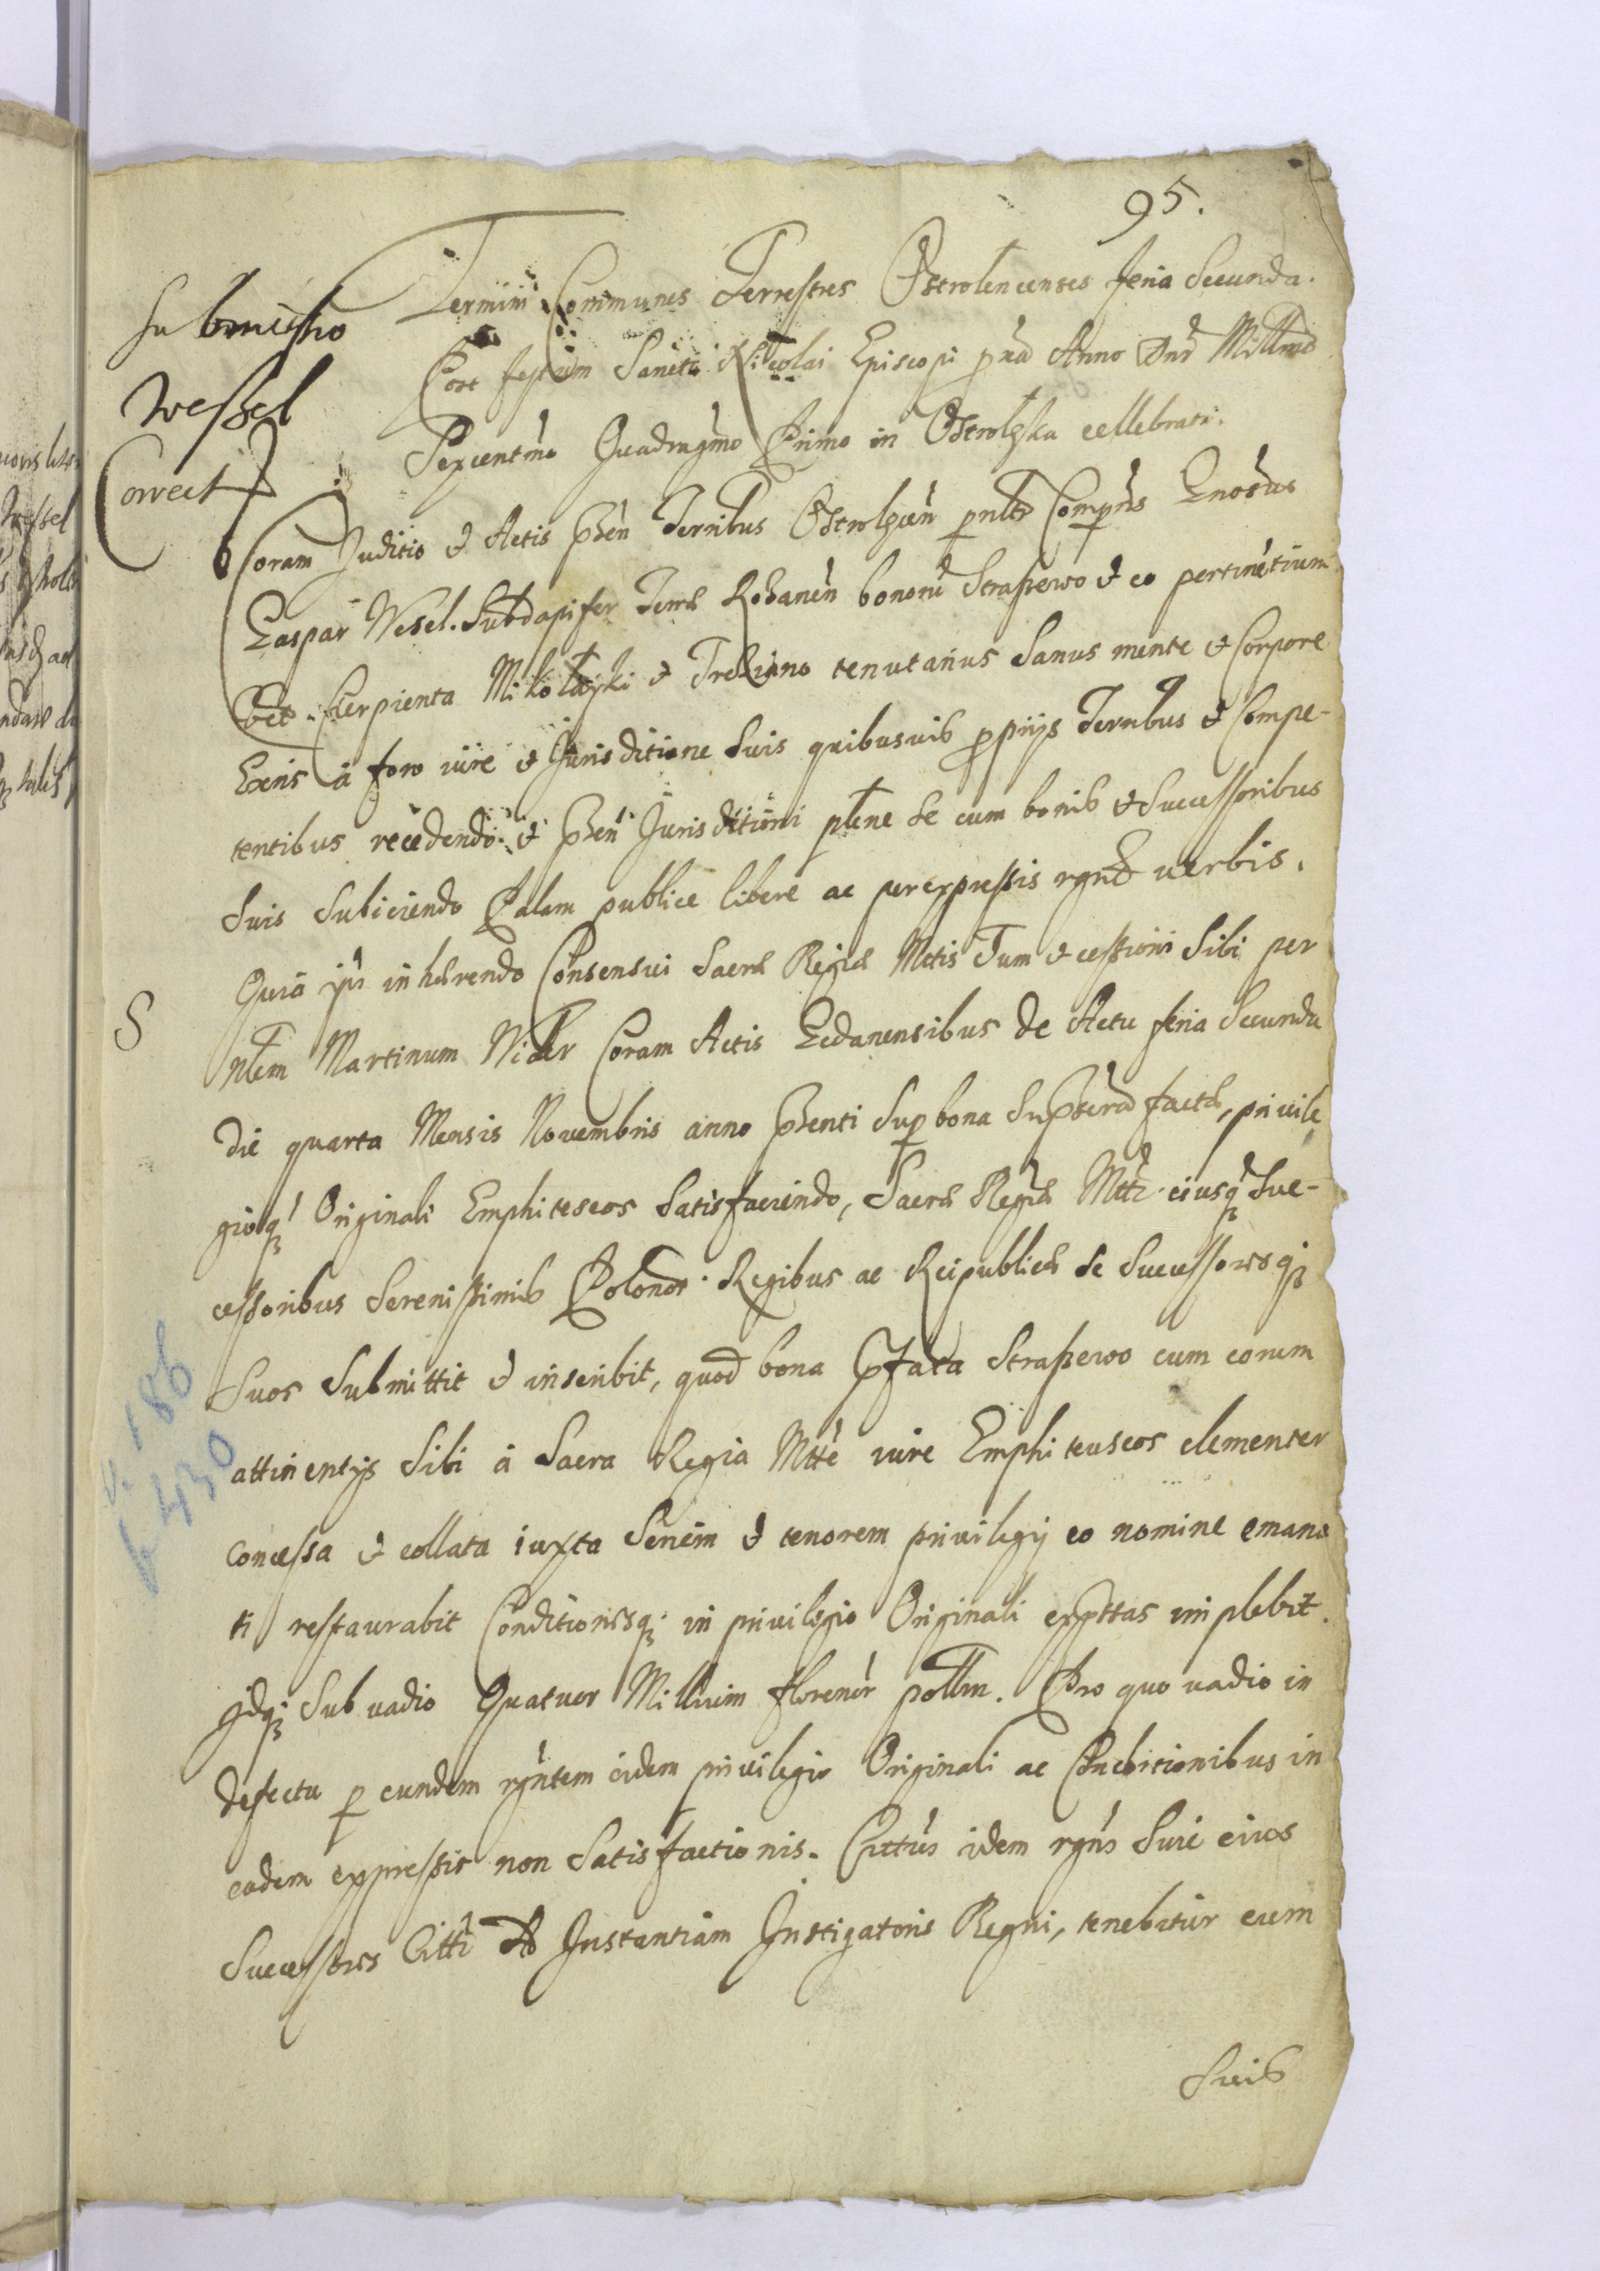 95.
Submissio
Wessel
Correct
Termini Communes Terrestres Ostrolencenses feria Secunda
Post festum Sancti Nicolai Episcopi pxa Anno Dnd Millmo
Sexcentmo Quadragmo Primo in Ostrolęka cellebrati.
Coram Juditio et Actis pñen Terribus Ostrolęcen pnlr Comprns Gnosus
Caspar Wesel Subdapifer Terræ Rozanen bonorũ Straszewo et eo pertinẽtium
Cierpienta Mikołayki et Treliano tenutarius Sanus mente et Corpore
Exẽns à foro iure et Jurisditione Suis quibusuis proprijs Terribus et Compe-
tentibus recedendo et pñen Jurisditioni plene Se cum bonis et Successoribus
Suis Subiiciendo Palam publice libere ac per expressis rgnt verbis.
Quia ips inhærendo Consensui Sacræ Regiæ Mttis Tum et cessioni Sibi per
Nlem Martinum Wider Coram Actis Gedanensibus de Actu feria Secunda
die quarta Mensis Novembris anno pñenti Sup bona Supscrã factæ, privile
gioq; Originali Emphiteseos Satisfaciendo, Sacræ Regiæ Mtti eiusq; Suc-
cessoribus Serenissimis Polonor Regibus ac Reipublicæ Se Successoresq;
Suos Submittit et inscribit, quod bona pfata Straszewo cum eorum
attinentijs Sibi à Sacra Regia Mtte iure Emphiteuseos clementer
concessa et collata iuxta Seriem et tenorem privilegij eo nomine emana
ti restaurabit Conditionesq; in privilegio Originali exptas implebit.
Jdq; Sub vadio Quatuor Millium florenor pollm. Pro quo vadio in
defectu p eundem rgntem eidem privilegio Originali ac Conditionibus in
eodem expressis non Satisfactionis. Cittus idem rgns Suie eius
Successores Citti Ad Instantiam Instigatoris Regni, tenebitur cum
Suis
S
v. 186
f 430